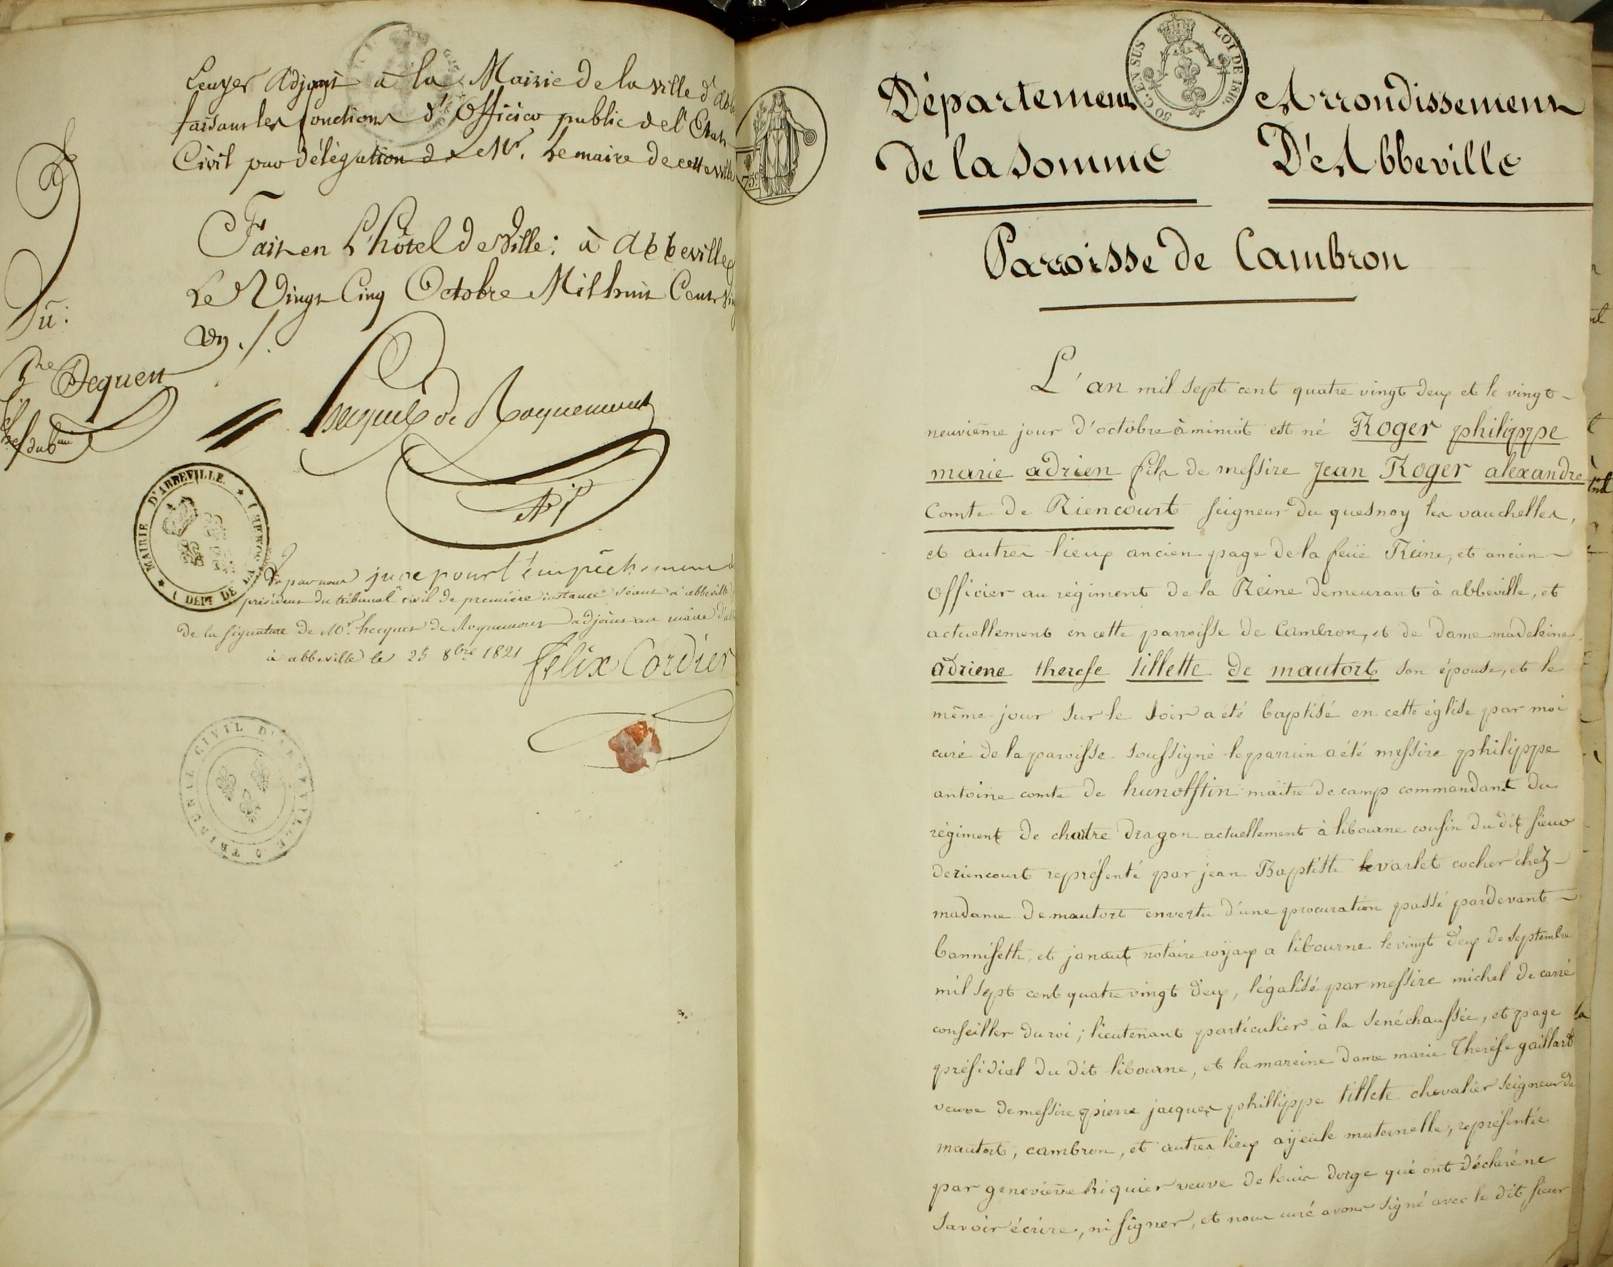 Ecuyer Adjoint à la Mairie de la ville d'Abb
faisant les fonctions d'Officier public de l'Etat
Civil par délégation de Mr. Lemaire de cette ville
Fait en L'hôtel de Ville : à Abbeville
Le Vingt Cinq Octobre Mil huit Cent Vin
un ./.
Du :
Dequen
Hecquet de Roquemont
MAIRIE D'ABBEVILLE
Vu par nous juge pour l'empêchement
président du tribunal civil de première instance séant à abbeville
de la signature de Mr. hecquet de Roquemont adjoint au maire
à abbeville le 25 8bre 1821
felix Cordier
TRIBUNAL CIVIL D'ABBEVILLE
50 C. EN SUS
LOI DE 1816
Département
de la Somme
Arrondissement
D'Abbeville
Parroisse de Cambron
L'an mil sept cent quatre vingt deux et le vingt
neuvieme jour d'octobre à minuit est né Roger philippe
marie adrien fils de messire Jean Roger alexandre
Comte de Riencourt seigneur du quesnoy les vauchelles,
et autres lieux ancien page de la feüe Reine, et ancien
officier au régiment de la Reine demeurant à abbeville, et
actuellement en cette parroisse de Cambron, et de dame madeleine
adriene therese tillette de mautort son épouse, et le
même jour sur le soir a été baptisé en cette église par moi
curé de la paroisse soussigné le parrain a été messire philippe
antoine comte de hunolstin maitre de camp commandant du
régiment de chartre dragon actuellement à libourne cousin du dit sieur
deriencourt représenté par jean Baptiste levarlet cocher chez
madame de mautort en vertu d'une procuration passé pardevant
et notaire royaux a libourne le vingt deux de septembre
mil sept cent quatre vingt deux, légalisé par messire michel de carré
conseiller du roi ; lieutenant particulier à la senéchaussée, et page
présidial du dit libourne, et la mareine dame marie Therése gaillard
veuve de messire pierre jacques phillippe tillete chevalier seigneur de
mautort, cambron, et autres lieux ayeule maternelle, représentée
par genevieve Riquier veuve de louis dorge qui ont déclaré ne
savoir écrire, ni signer, et nous curé avons signé avec le dit sieur